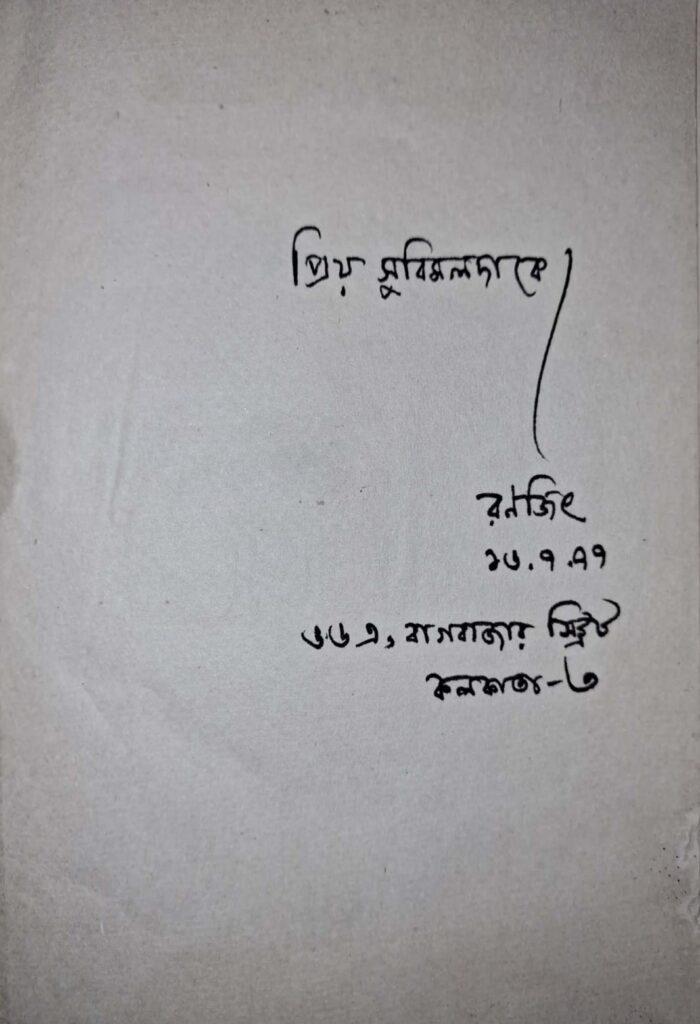 প্রিয় সুবিমলদাকে
রণজিৎ
১৬.৭.৭৭
৬৬এ, বাগবাজার স্ট্রিট
কলকাতা-৩